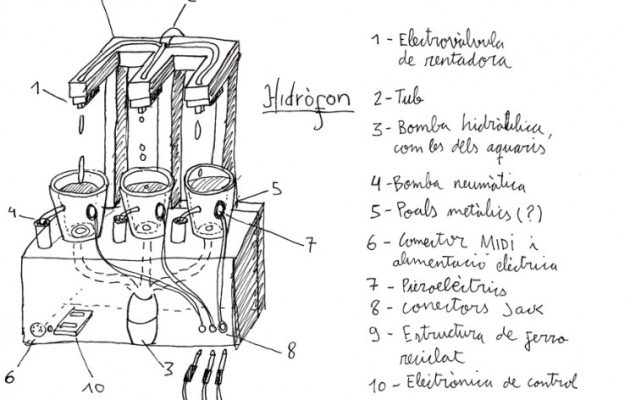 2
1
Hidròfon
5
4
7
8
6
10
3
1 - Electrovàlvula
de rentadora
2 - Tub
3 - Bomba hidràulica,
com les dels aquaris
4 - Bomba neumàtica
5 - Poals metàlics (?)
6 - Conector MIDI i
alimentació elèctrica
7 - Piezoelèctrics
8 - conectors Jack
9 - Estructura de ferro
reciclat
10 - Electrònica de control